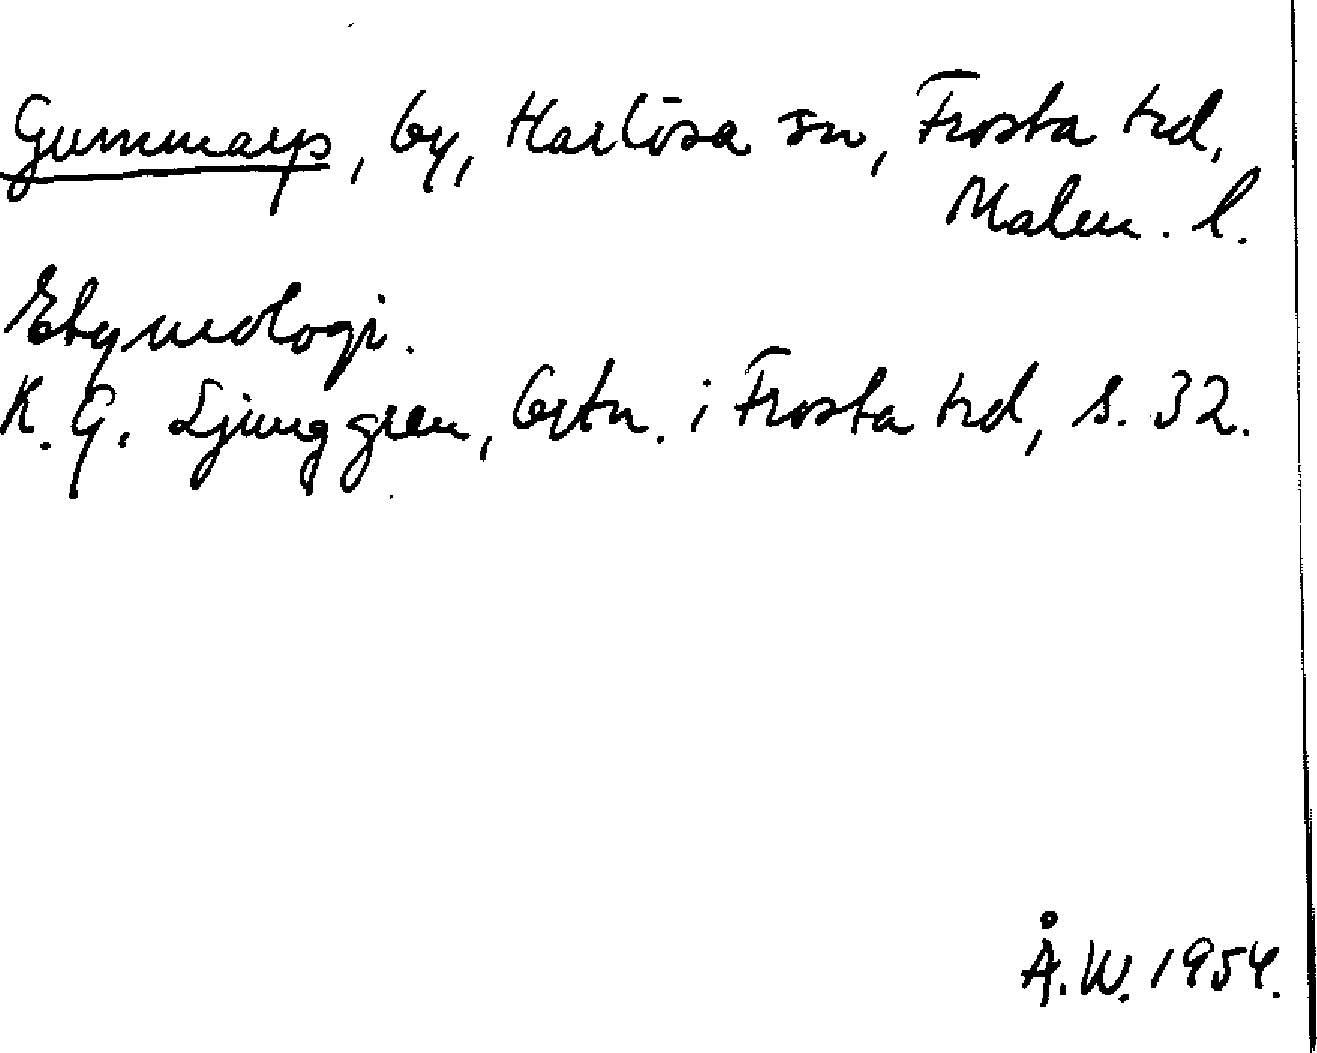 Gummarp, by, Harlösa sn, Frosta hd,
Malm. l.
Etymologi.
K. G. Ljunggren, Bytn. i Frosta hd, s. 32.
Å. W. 1954.